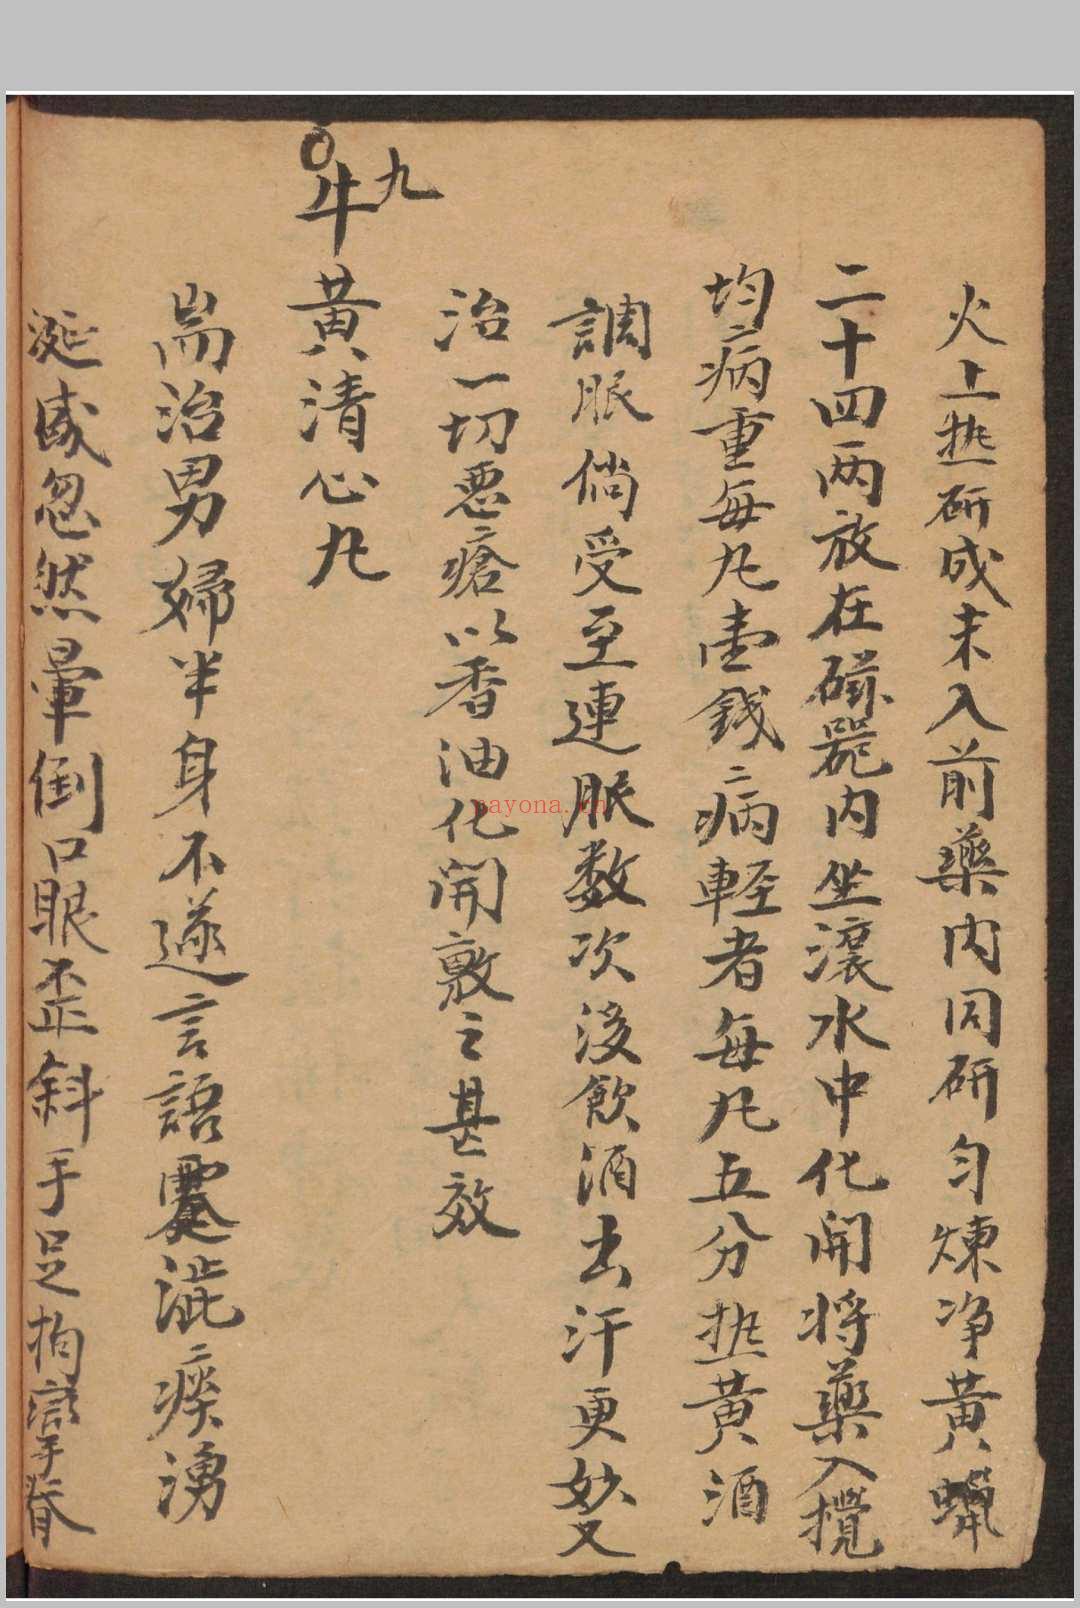 火上热研成末入前藥内同研匀煉净黄蠟
二十四两放在磁器内坐滚水中化開将藥入攪
均病重每丸壹錢病輕者每丸五分热黄酒
調服倘受至連服数次後飲酒出汗更妙又
治一切惡瘡以香油化開敷之甚效
九
牛黄清心丸
耑治男婦半身不遂言語蹇澁痰湧
涎盛忽然暈倒口眼歪斜手足拘攣脊
payona.cn